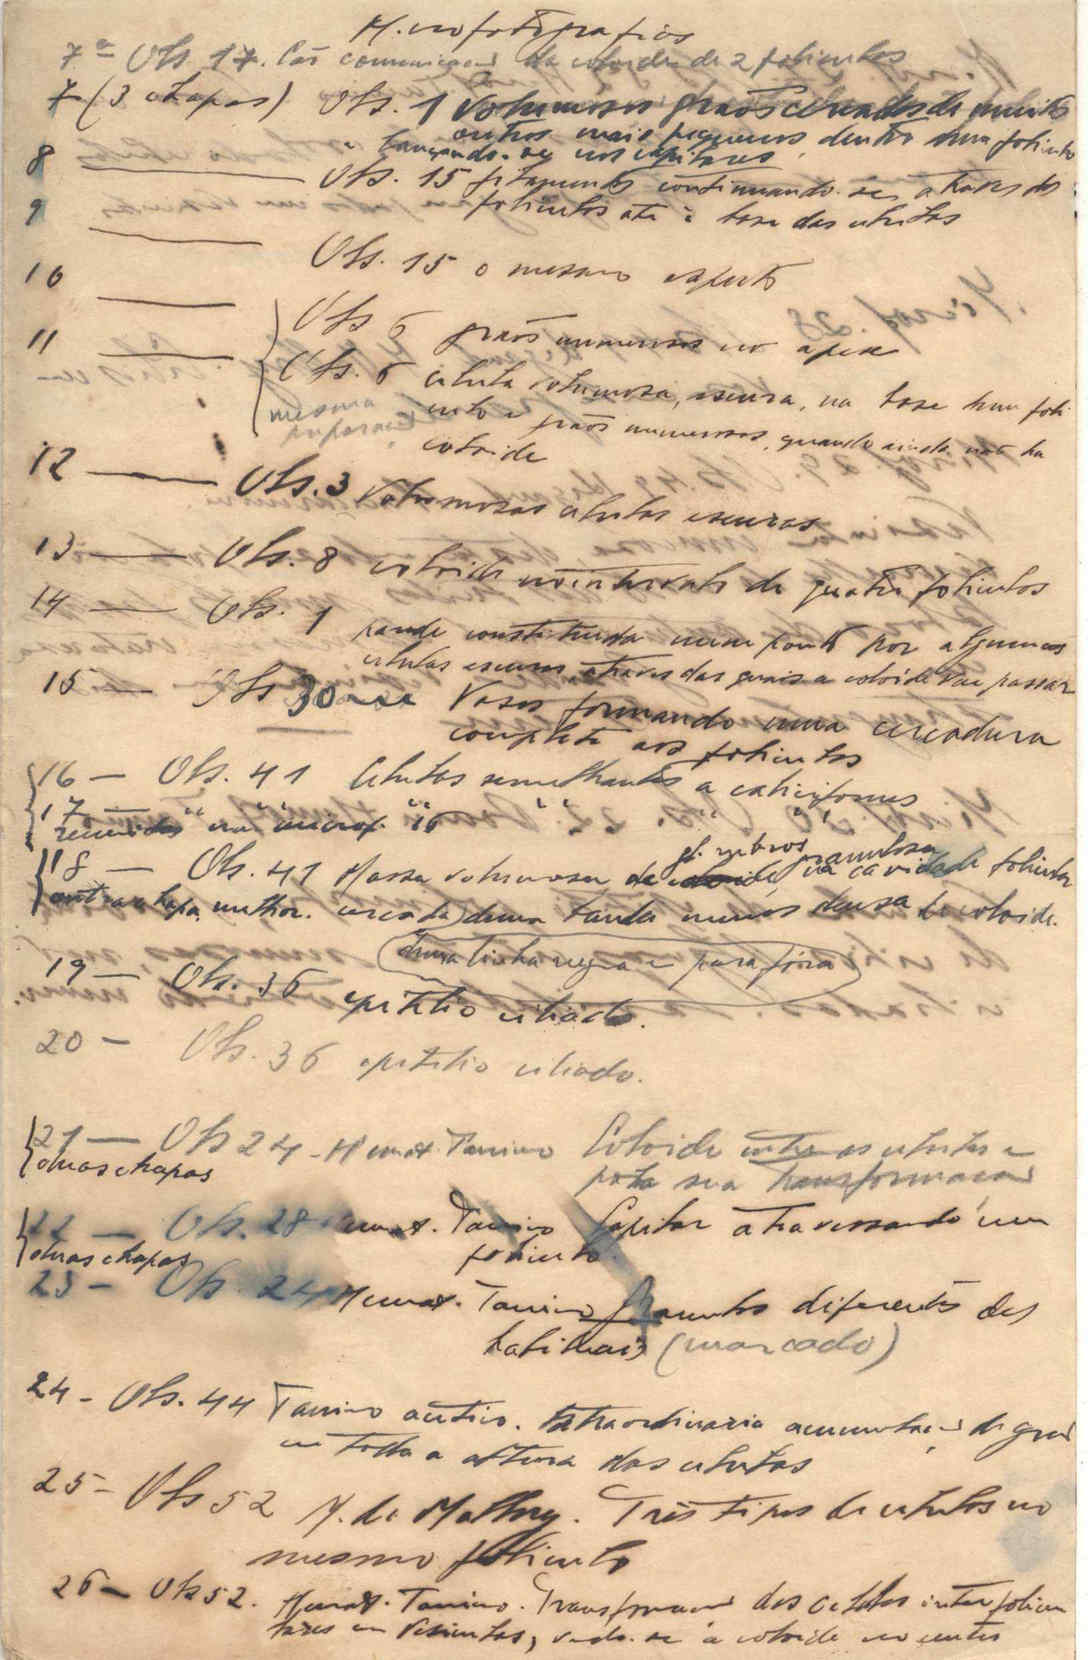 Microfotografias
7ª Obs. 17. Cás comunicação da coloide de 2 foliculos
7 (3 chapas) Obs. 1 Volumosos grãos cercados de muitos
outros mais pequenos dentro dum foliculo
e lançando-se nos capilares
8 Obs. 15 filamentos continuando-se atravez dos
foliculos até á base das celulas
9
Obs. 15 o mesmo aspecto
10 Obs 6 grãos numerosos no apex
11 Obs. 6 celula volumosa, escura, na base dum foli
culo e grãos numerosos, quando ainda não ha
coloide
mesma
preparação
12 Obs. 3 Volumosas celulas escuras
13 Obs. 8 coloide no intervalo de quatro foliculos
14 Obs. 1 parede constituida num ponto por algumas
celulas escuras, atravez das quais a coloide vae passar
15 Obs 30 Vasos formando uma cercadura
completa aos foliculos
16 — Obs. 41 Celulas semelhantes a caliciformes
17 — " " " " " "
reunidas na microf. 16
18 — Obs. 41 Massa volumosa de gl. rubros granulosa na cavidade folicular
outra chapa melhor. cercada duma banda menos densa de coloide.
duma linha negra e para fóra
19 — Obs. 36 epitelio ciliado.
20 — Obs. 36 epitelio ciliado.
21 — Obs 24 - Hemat. Tanino Coloide entre as celulas e
pela sua transformação
outras chapas
22 — Obs. 28 Hemat. Tanino Capilar atravessando um
foliculo
outras chapas
23 — Obs. 24 Hemat. Tanino Granulos diferentes dos
habituais (marcado)
24 - Obs. 44 Tanino acetico. Extraordinaria acumulação de grãos
em toda a altura das celulas
25 - Obs 52 M. de Mallory. Três tipos de celulas no
mesmo foliculo
26 — Obs 52. Hemat. Tanino. Transformação das celulas interfolicu
lares em vesiculas, vendo-se a coloide no centro